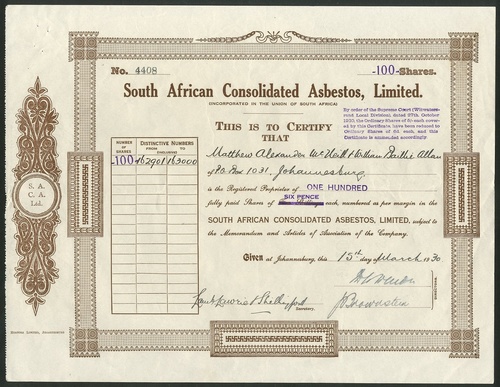 No. 4408
-100-Shares.
South African Consolidated Asbestos, Limited.
(INCORPORATED IN THE UNION OF SOUTH AFRICA)
By order of the Supreme Court (Witwaters-
rand Local Division), dated 27th October
1930, the Ordinary Shares of 5/- each covered
by this Certificate have been reduced to
Ordinary Shares of 6d. each, and this
Certificate is amended accordingly
THIS IS TO CERTIFY
THAT
NUMBER OF SHARES
DISTINCTIVE NUMBERS
FROM INCLUDING TO
-100- 162901 163000
Matthew Alexander McNeill & William Baillie Allan
of P.O. Box 1031, Johannesburg
is the Registered Proprietor of ONE HUNDRED
SIX PENCE
fully paid Shares of Shillings each, numbered as per margin in the
SOUTH AFRICAN CONSOLIDATED ASBESTOS, LIMITED, subject to
the Memorandum and Articles of Association of the Company.
S. A.
C. A.
Ltd.
Given at Johannesburg, this 15th day of March 1930
DIRECTORS.
Secretary.